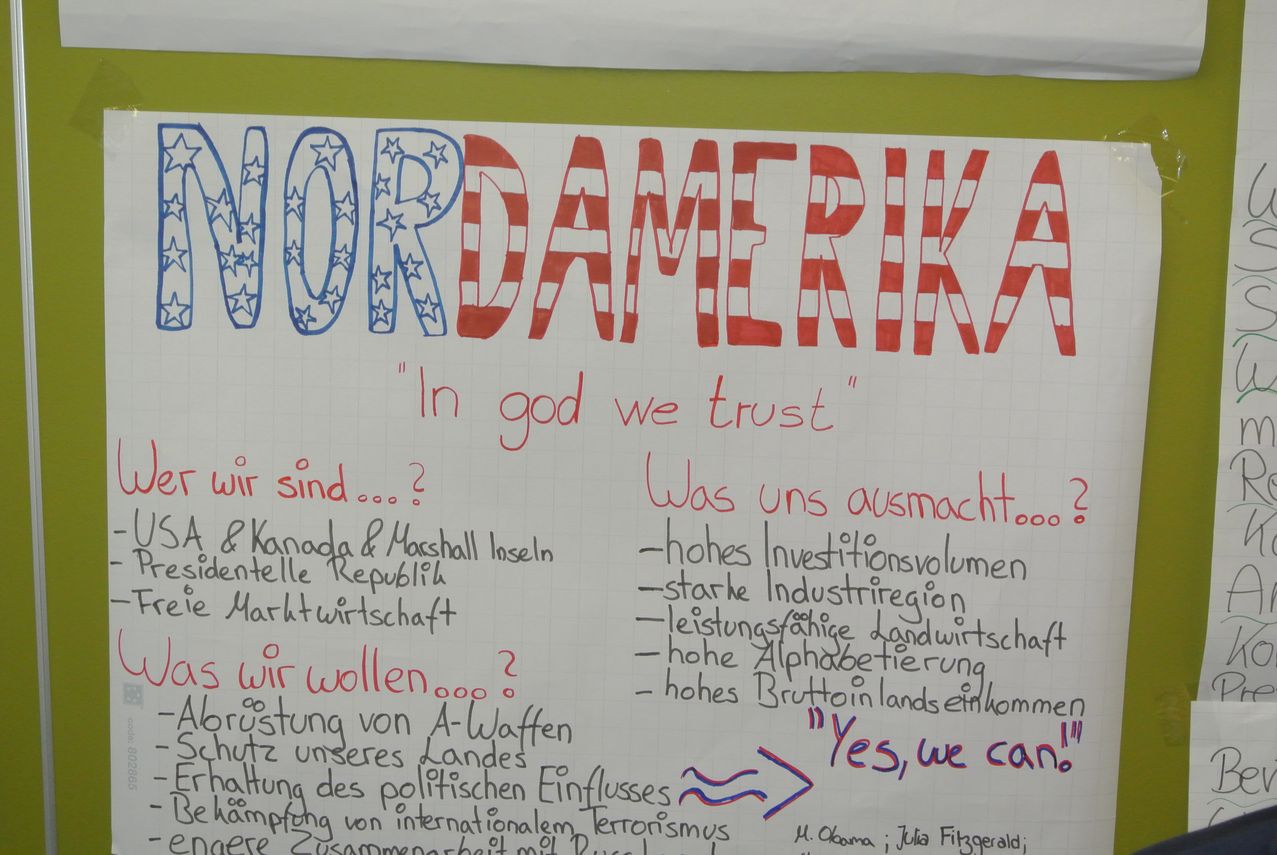 NORDAMERIKA
"In god we trust"
Wer wir sind...?
- USA & Kanada & Marshall Inseln
- Presidentelle Republik
- Freie Marktwirtschaft
Was wir wollen...?
- Abrüstung von A-Waffen
- Schutz unseres Landes
- Erhaltung des politischen Einflusses
- Bekämpfung von internationalem Terrorismus
- engere Zusammenarbeit mit
Was uns ausmacht...?
- hohes Investitionsvolumen
- starke Industriregion
- leistungsfähige Landwirtschaft
- hohe Alphabetierung
- hohes Bruttoinlandseinkommen
"Yes, we can!"
M. Obama; Julia Fitzgerald;
code: 802865